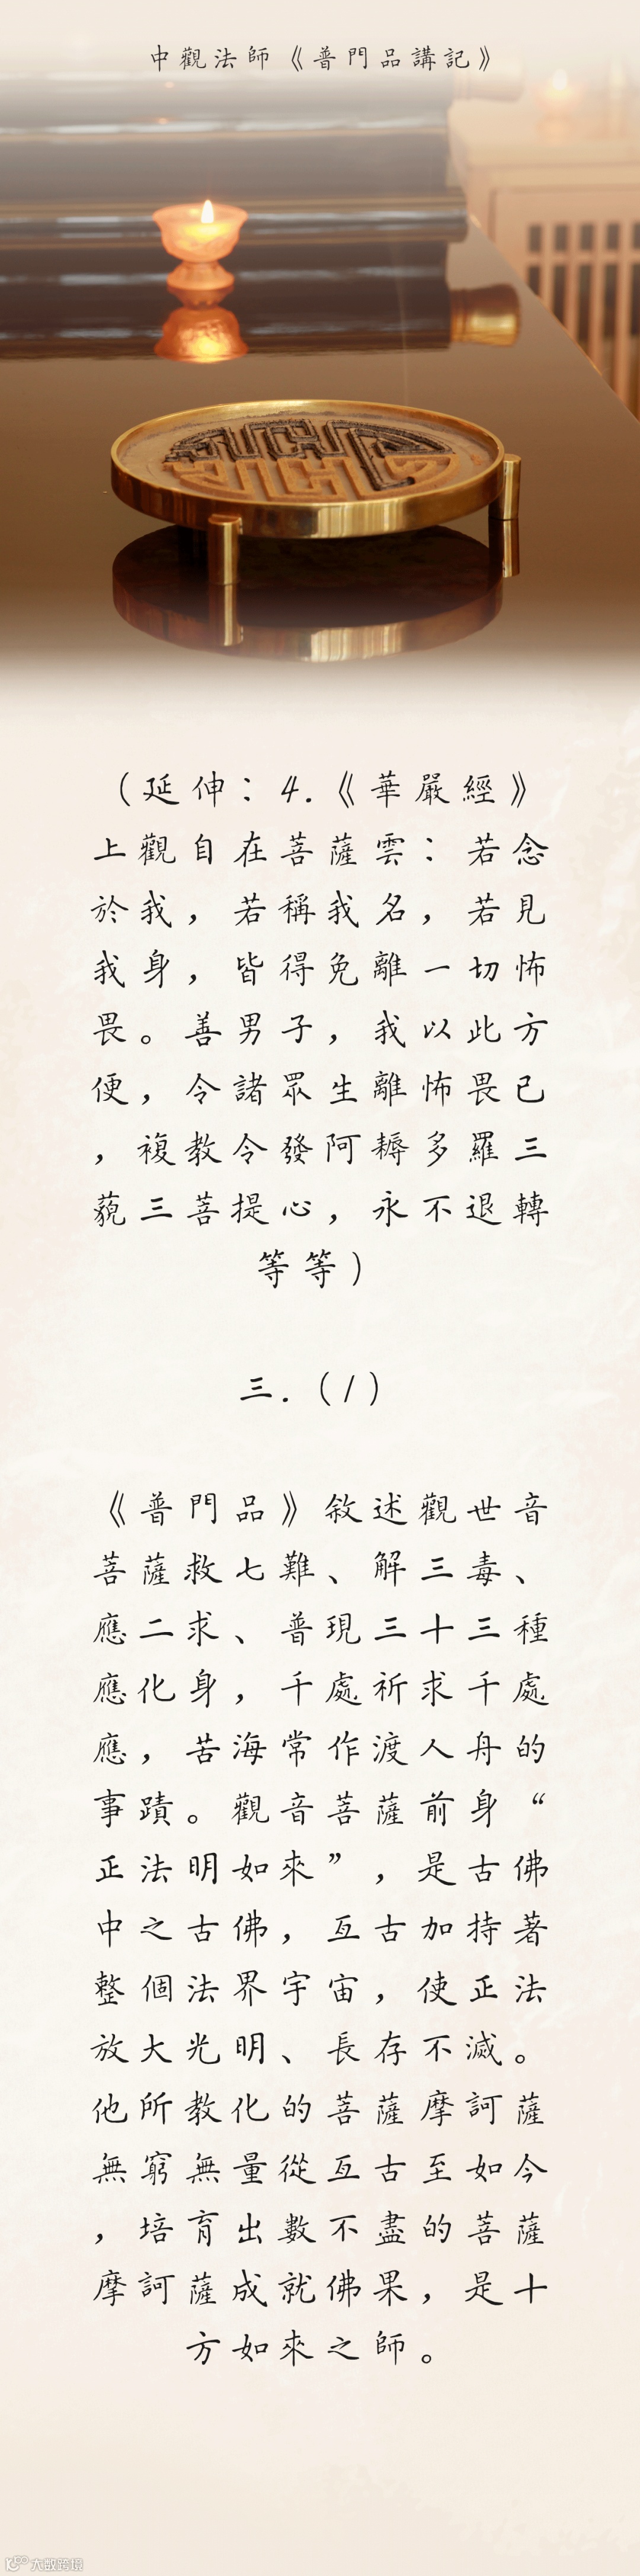 中觀法師《普門品講記》
（延伸：4.《華嚴經》
上觀自在菩薩雲：若念
於我，若稱我名，若見
我身，皆得免離一切怖
畏。善男子，我以此方
便，令諸眾生離怖畏已
，複教令發阿耨多羅三
藐三菩提心，永不退轉
等等）
三.（/）
《普門品》敘述觀世音
菩薩救七難、解三毒、
應二求、普現三十三種
應化身，千處祈求千處
應，苦海常作渡人舟的
事蹟。觀音菩薩前身“
正法明如來”，是古佛
中之古佛，亙古加持著
整個法界宇宙，使正法
放大光明、長存不滅。
他所教化的菩薩摩訶薩
無窮無量從亙古至如今
，培育出數不盡的菩薩
摩訶薩成就佛果，是十
方如來之師。
大蚁跨境